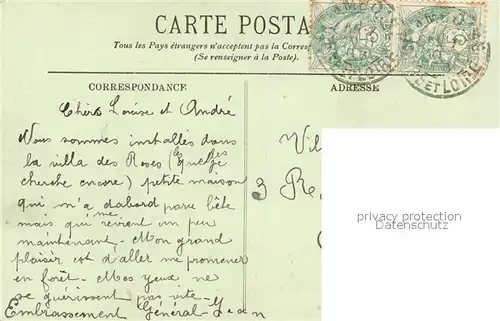 CARTE POSTA
Tous les Pays étrangers n'acceptent pas la Corresp
(Se renseigner à la Poste).
CORRESPONDANCE
ADRESSE
ET LOIRE
ET LOIRE
Chers Louise et André
Nous sommes installés dans
la villa des Roses (lesquelles je
cherche encore) petite maison
qui m'a d'abord paru bête
mais qui me revient un peu
maintenant - Mon grand
plaisir est d'aller me promener
en forêt - Mes yeux ne
se guérissent pas vite -
Embrassement Général - Jean
Vil
3 R
privacy protection
Datenschutz